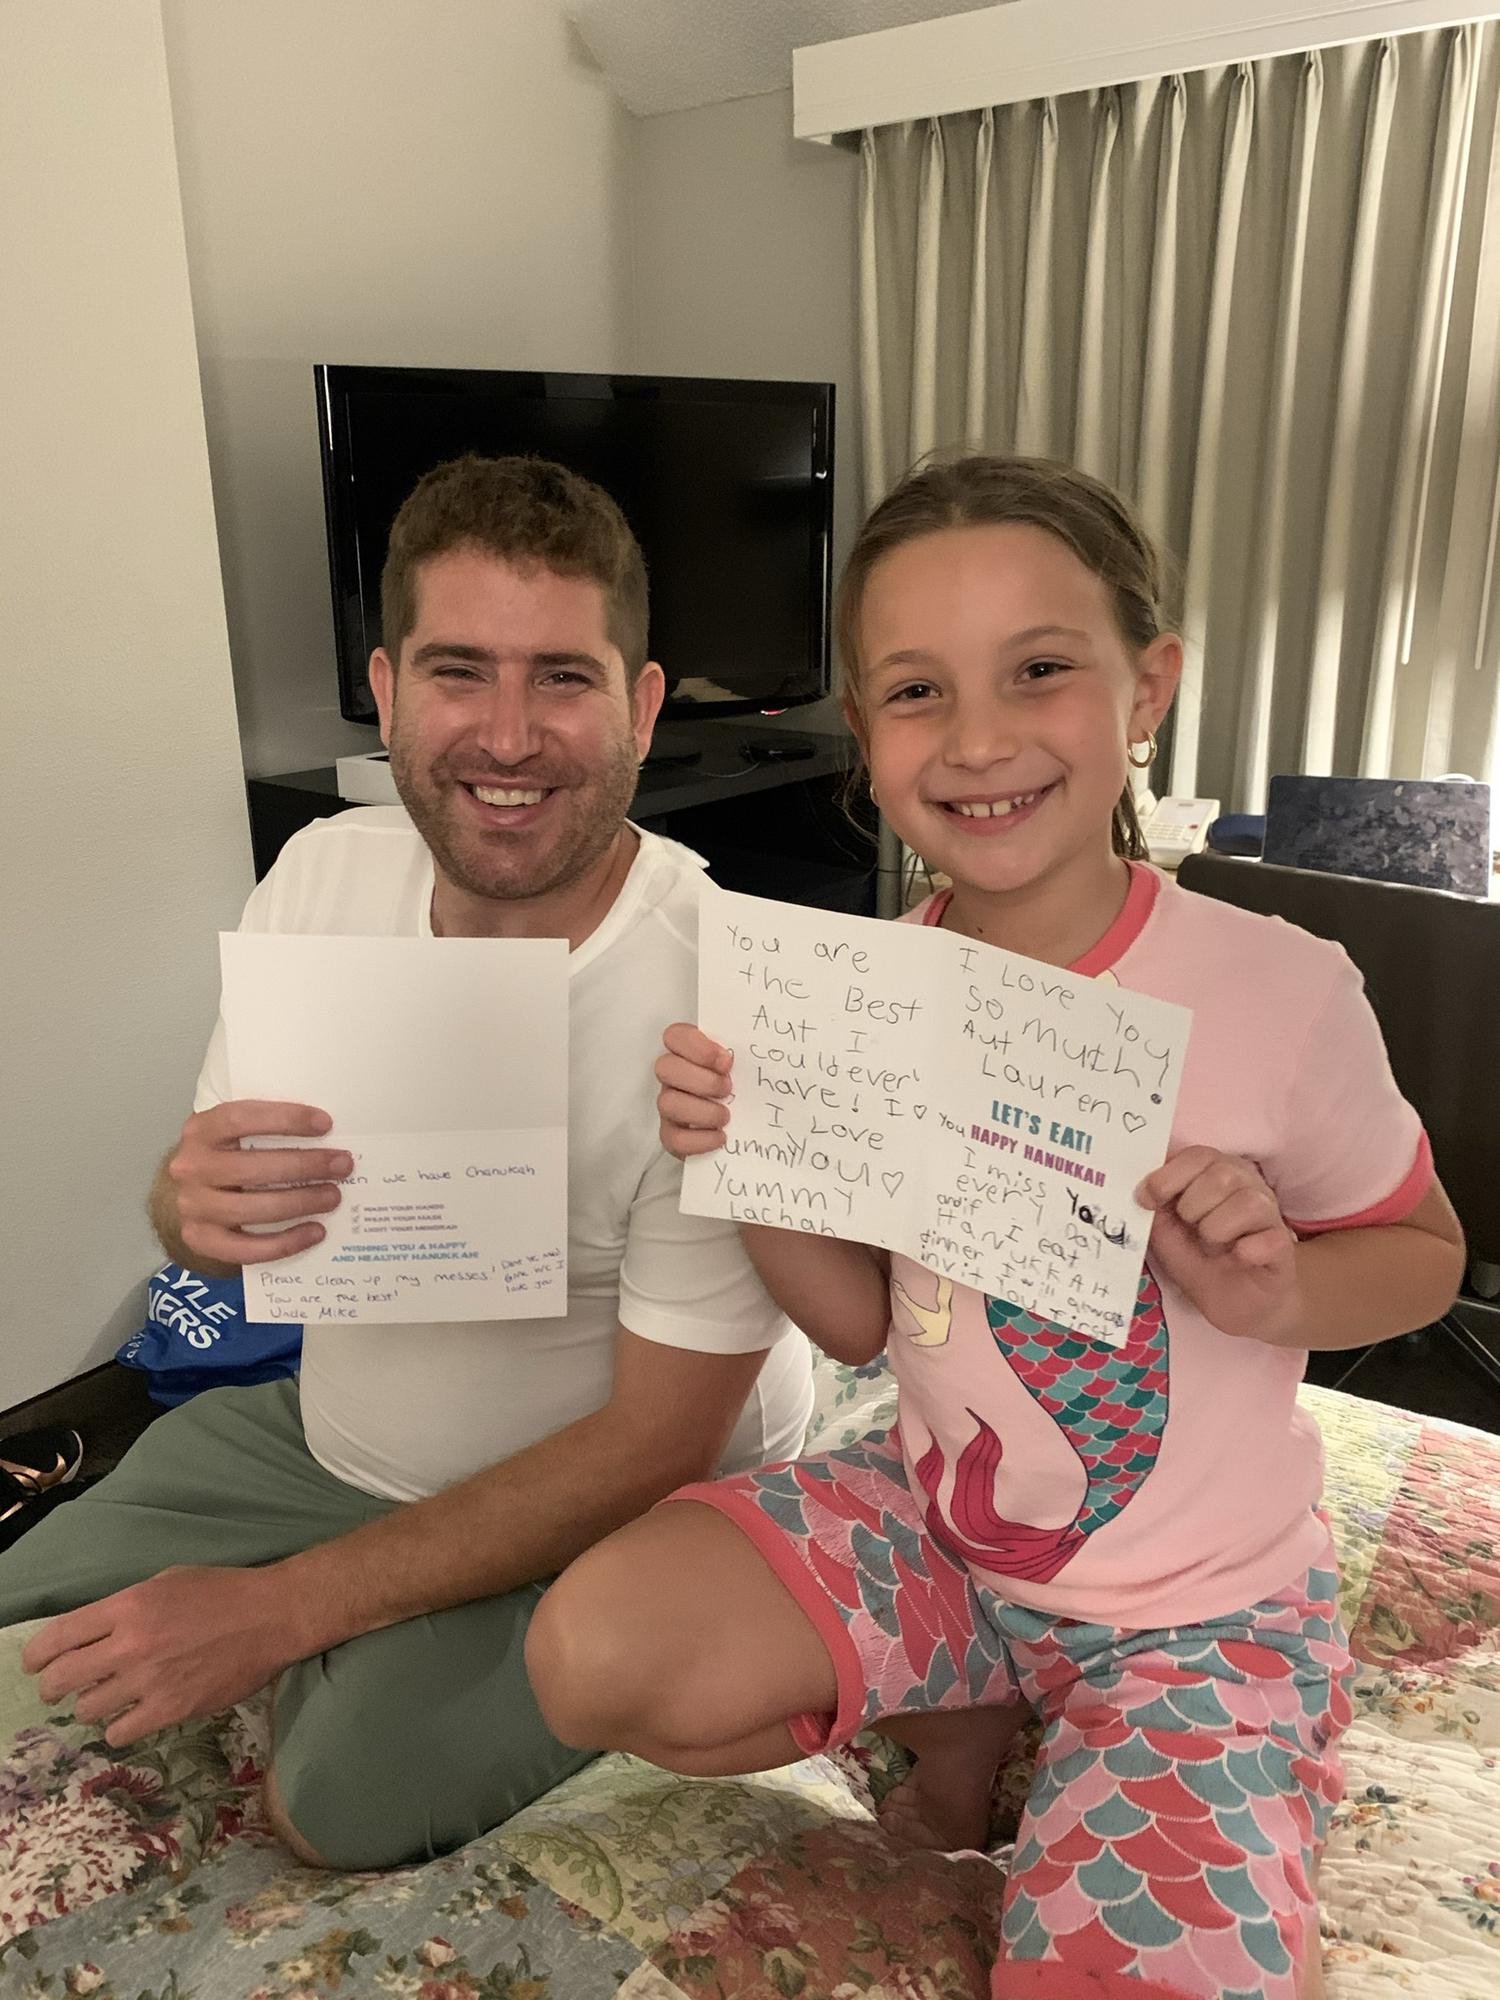 when we have Chanukah
WASH YOUR HANDS
WEAR YOUR MASK
LIGHT YOUR MENORAH
WISHING YOU A HAPPY
AND HEALTHY HANUKKAH!
Please clean up my messes!
You are the best!
Uncle Mike
You are
the Best
Aut I
could ever
have! I ♡
I Love
You ♡
Yummy
Lachah
I Love You
So Muth!
Aut
Lauren ♡
LET'S EAT!
You HAPPY HANUKKAH
I miss You
every Day
and if I eat
HANUKKAH
dinner I will always
invit You first
YLE
NERS